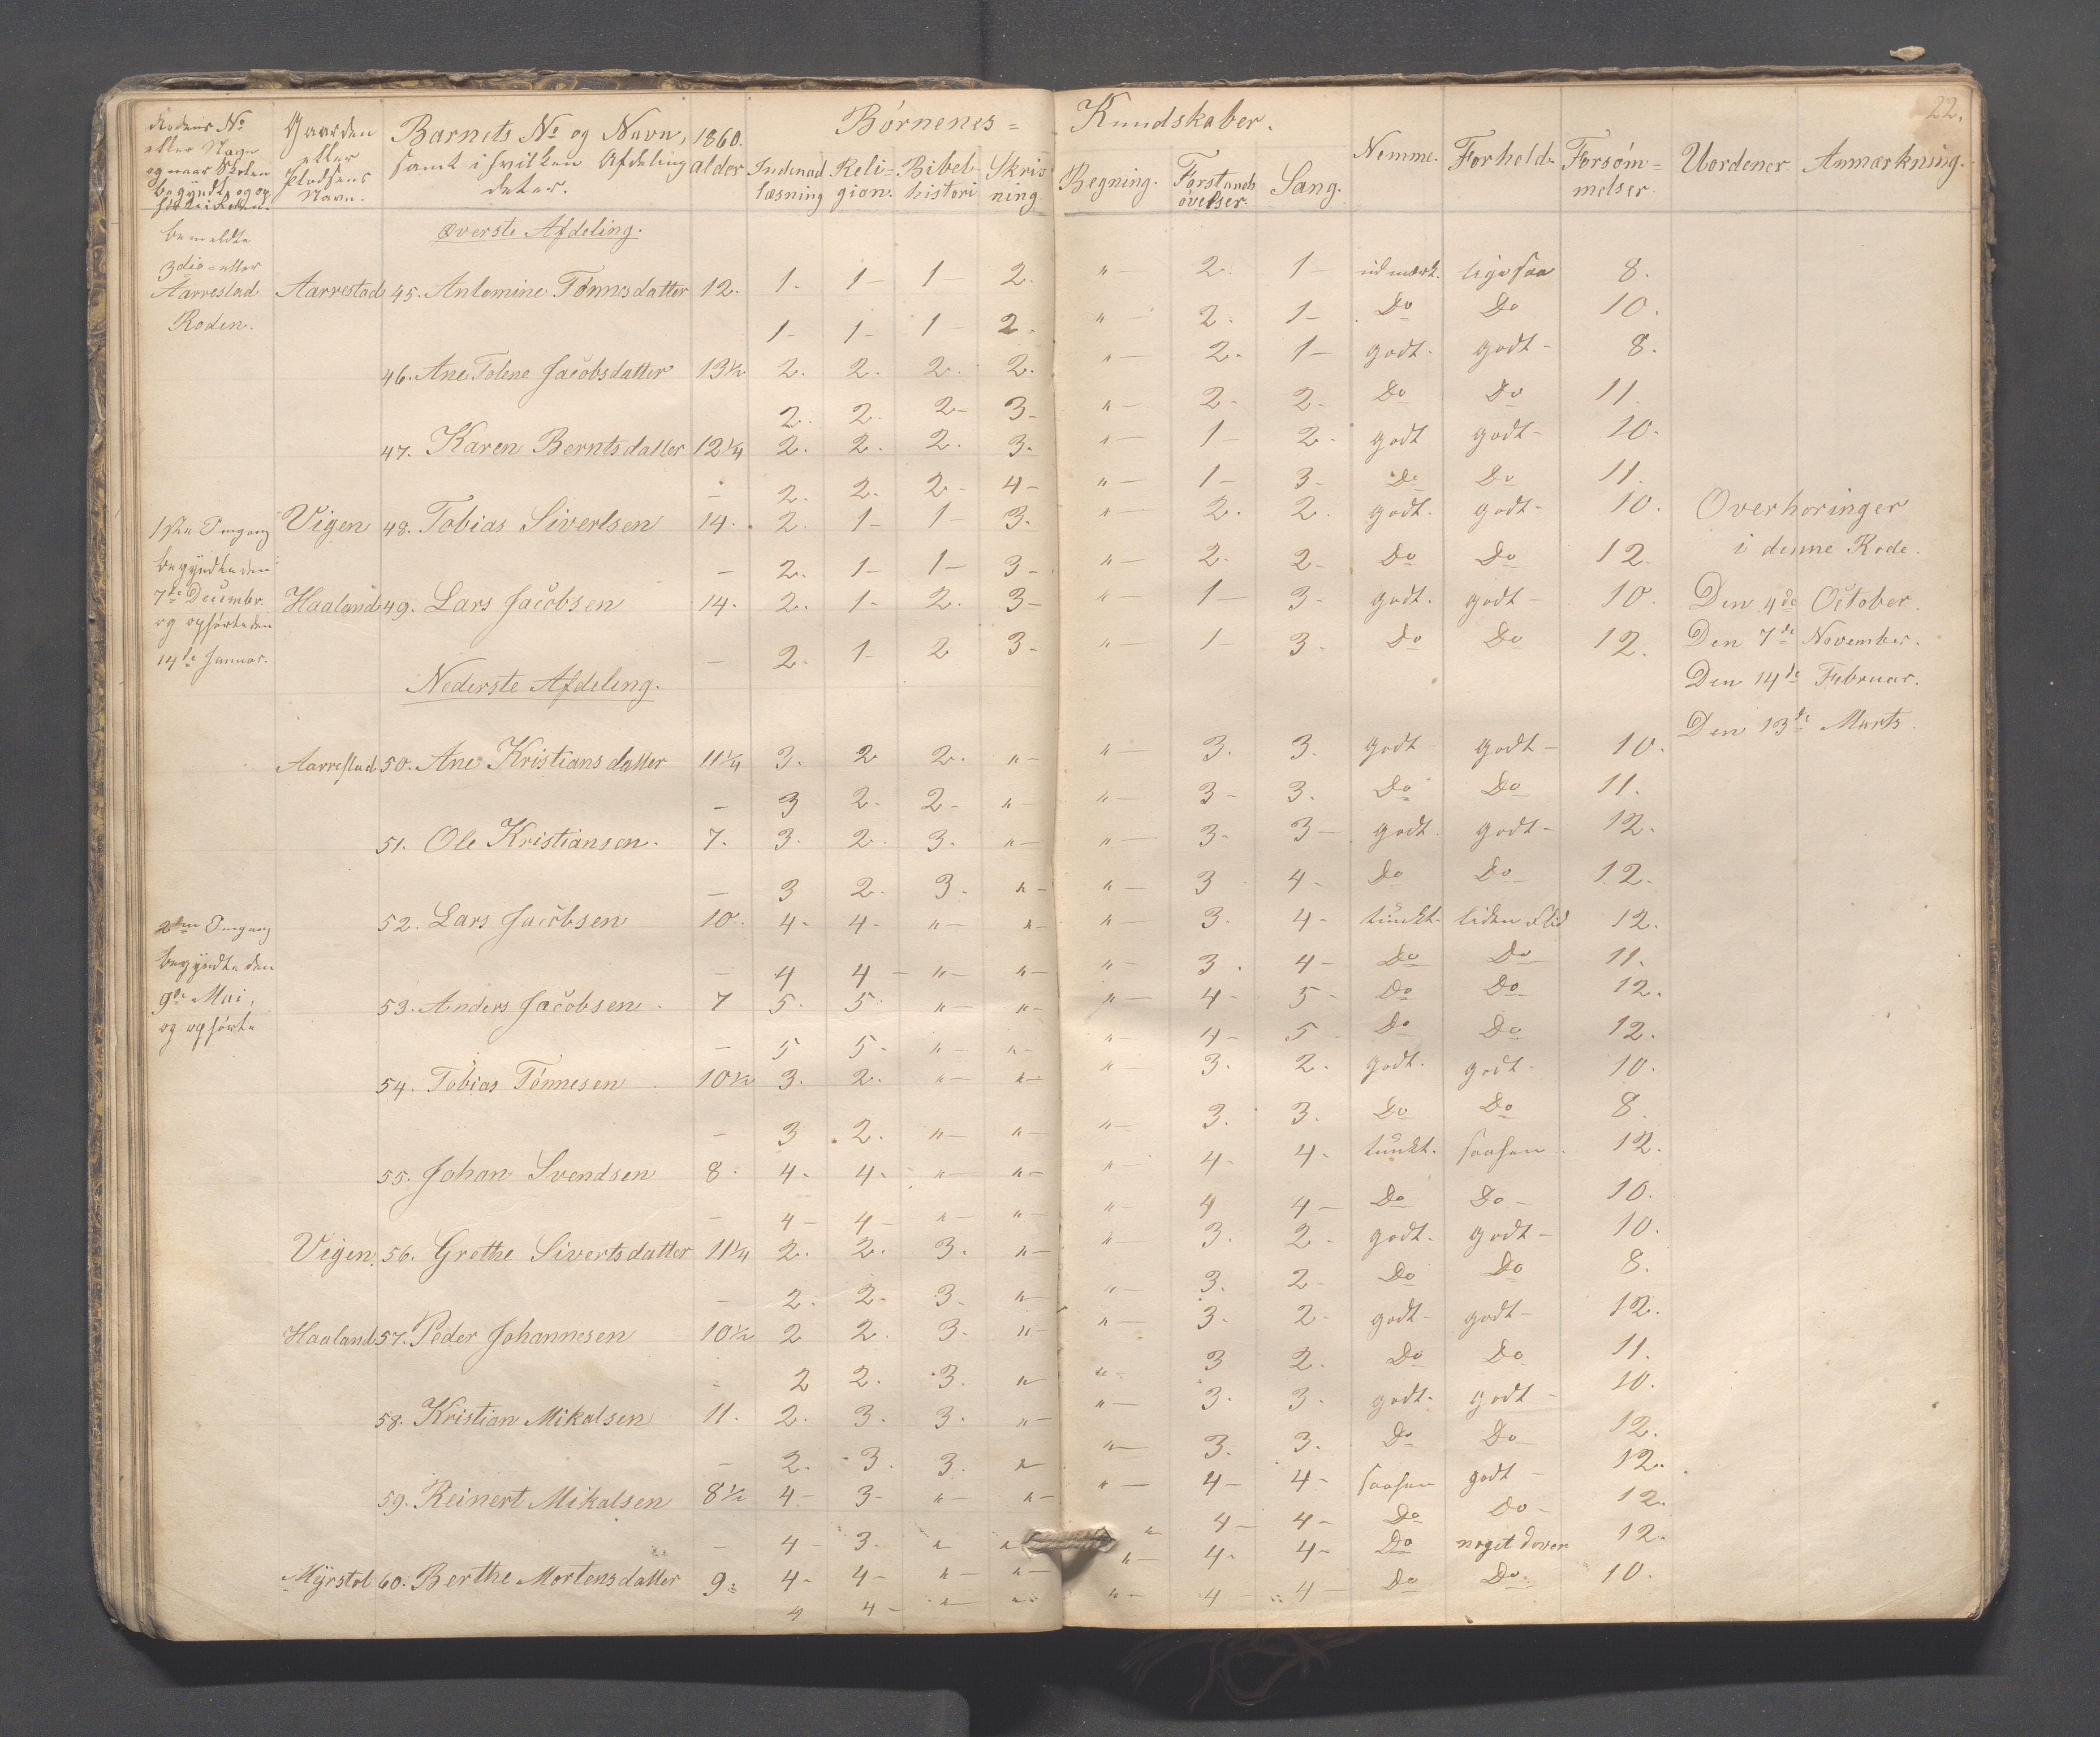 22.
Rodens No Gaarden Barnets No og Navn, 1860. Børnenes= Kundskaber.
eller Navn eller samt i hvilken Afdeling alder Indenad Reli= Bibel Skriv Regning. Forstands Sang. Nemme. Forhold. Forsøm= Uordener. Anmærkning.
og naar Skolen Pladsens det er. læsning gion. histori ning øvelser. melser.
begyndte og op Navn.
Øverste Afdeling.
bemeldte
3die eller
Aarrestad Aarrestad 45. Antomine Tønnesdatter 12. 1. 1 – 1 – 2. " – 2. 1 – udmærk. ligesaa 8.
Roden. 1 – 1 – 1 – 2. " – 2. 1 – Do Do 10.
46. Ane Tolene Jacobsdatter 13½ 2. 2. 2. 2. " – 2. 1 – godt. godt – 8.
2. 2. 2 – 3 – " – 2 – 2 – Do Do 11.
47. Karen Berntsdatter 12¼ 2. 2. 2. 3. " – 1 – 2 – godt godt – 10.
– 2. 2. 2 – 4 – " – 1 – 3 – Do Do 11.
1ste Omgang Vigen 48. Tobias Sivertsen 14. 2. 1 – 1 – 3. " – 2. 2. godt. godt – 10. Overhøringer
begyndte den – 2. 1 – 1 – 3 – " – 2 – 2 – Do Do 12. i denne Rode.
7de Decembr. Haaland 49. Lars Jacobsen 14. 2. 1 – 2. 3 – " – 1 – 3 – godt. godt – 10. Den 4de October.
og ophørte den – 2. 1 – 2 3 – " – 1 – 3. Do Do 12. Den 7de November.
14de Januar. Den 14de Februar.
Nederste Afdeling. Den 13de Marts.
Aarrestad 50. Ane Kristiansdatter 11¼ 3. 2 2. " – " – 3. 3. godt godt – 10.
– 3 2. 2 – " – " – 3 – 3. Do Do 11.
51. Ole Kristiansen. 7. 3. 2. 3. " – " – 3 – 3 – godt godt – 12.
– 3 2. 3. " – " – 3 4 – Do Do 12.
2den Omgang 52. Lars Jacobsen 10. 4 – 4 – " – " – " – 3. 4 – tungt. liden Flid 12.
begyndte den – 4 4 – " – " – " – 3. 4 – Do Do 11.
9de Mai, 53. Anders Jacobsen 7 5. 5. " – " – " – 4 – 5 – Do Do 12.
og ophørte – 5 5 – " – " – " – 4 – 5 Do Do 12.
54. Tobias Tønnesen 10½ 3. 2. " – " – " – 3. 2. godt. godt. 10.
– 3 2. " – " – " – 3. 3. Do Do 8.
55. Johan Svendsen 8. 4. 4. " – " – " 4. 4. tungt. saasen 12.
– 4 – 4 – " – " – " – 4 4 – Do Do – 10.
Vigen. 56. Grethe Sivertsdatter 11¼ 2. 2. 3. " – " – 3. 2 – godt. godt – 10.
– 2. 2 – 3. " – " – 3. 2 – Do Do 8.
Haaland 57. Peder Johannesen 10½ 2 2. 3. " – " – 3. 2 – godt – godt – 12.
– 2 2. 3. " – " – 3 2. Do Do 11.
58. Kristian Mikalsen 11. 2. 3. 3. " – " – 3. 3. godt – godt – 10.
– 2. 3. 3. " – " – 3. 3. Do Do – 12.
59. Reinert Mikalsen 8½ 4 – 3 – " – " – " – 4 – 4 – saasen godt – 12.
– 4 – 3 – " – " " 4 – 4 – Do Do – 12.
Myrstol 60. Berthe Mortensdatter 9. 4 – 4 – " – " – " – 4 – 4 – Do noget doven 12.
4 4 – " – " " – 4 – 4 – Do Do 10.